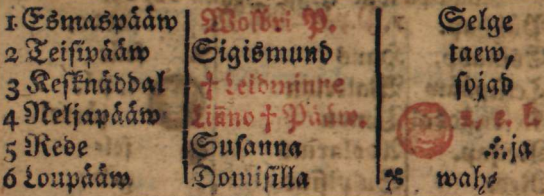 1 Esmaspääw Wolbri P. Selge
2 Teisipääw Sigismund taew,
3 Kesknäddal † Leidminne sojad
4 Neljapääw Linno † Pääw.
5 Rede Susanna ja
6 Loupääw Domisilla wahs